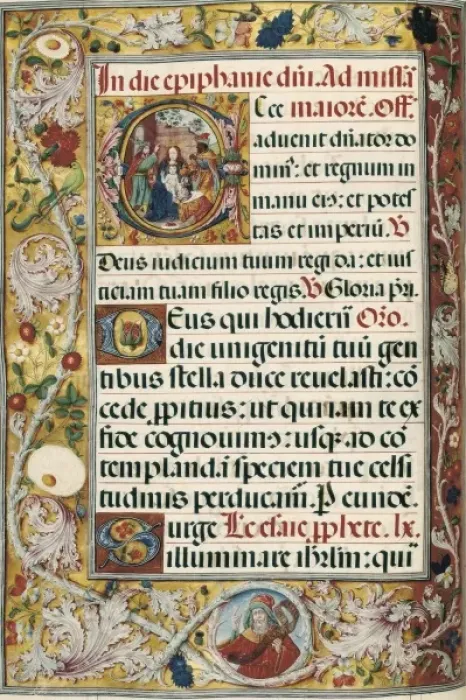 In die epiphanie dn̄i. Ad missā
Ecce maiorē. Off.
aduenit dn̄ator do
min⁹: et regnum in
manu eiꝰ: et potes
tas et imperiū. V
Deus iudicium tuum regi da: et ius
ticiam tuam filio regis. V Gloria pr̄i.
Deus qui hodiernā Oro.
die unigenitū tuū gen
tibus stella duce reuelasti: cō
cede ꝓpitius: ut qui iam te ex
fide cognouimꝰ: usqꝫ ad cō
templandā speciem tue celsi
tudinis perducam̄. P eundē.
Surge Lc̄ Esaie ꝓphete. lx.
illuminare ihrl̄m: qui